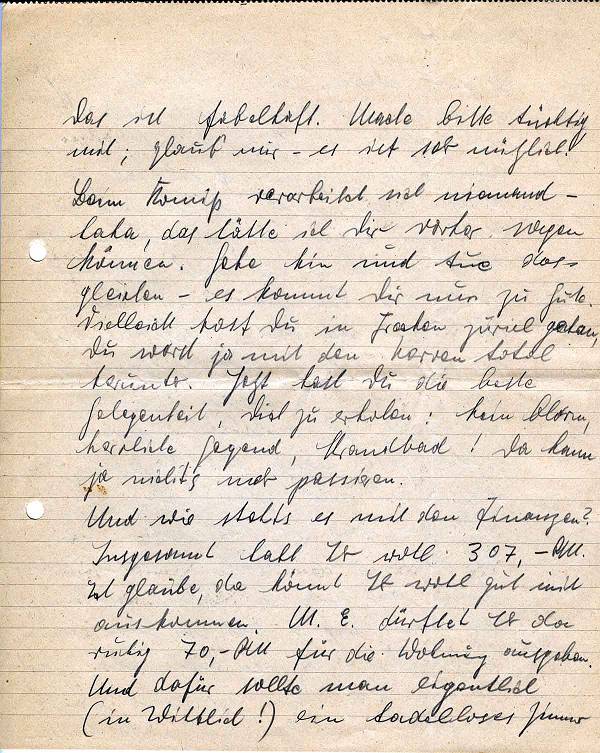 Das ist fabelhaft. Mache bitte tüchtig
mit; glaub mir - es ist sehr nützlich!
Beim Komiß verarbeitet sich niemand -
haha, das hätte ich Dir vorher sagen
können. Gehe hin und tue das-
gleichen - es kommt Dir nur zu Gute.
Vielleicht hast Du in zurück getan,
Du warst ja mit den Nerven total
herunter. Jetzt hast Du die beste
Gelegenheit, Dich zu erholen: kein Alarm,
herrliche Gegend, Strandbad! Da kann
ja nichts mehr passieren.
Und wie stehts es mit den Finanzen?
Insgesamt habt Ihr wohl 307,- RM.
Ich glaube, da könnt Ihr wohl gut mit
auskommen. M. E. dürftet Ihr da
ruhig 70,- RM für die Wohnung ausgeben.
Und dafür sollte man eigentlich
(in Wittlich!) ein tadelloses Zimmer